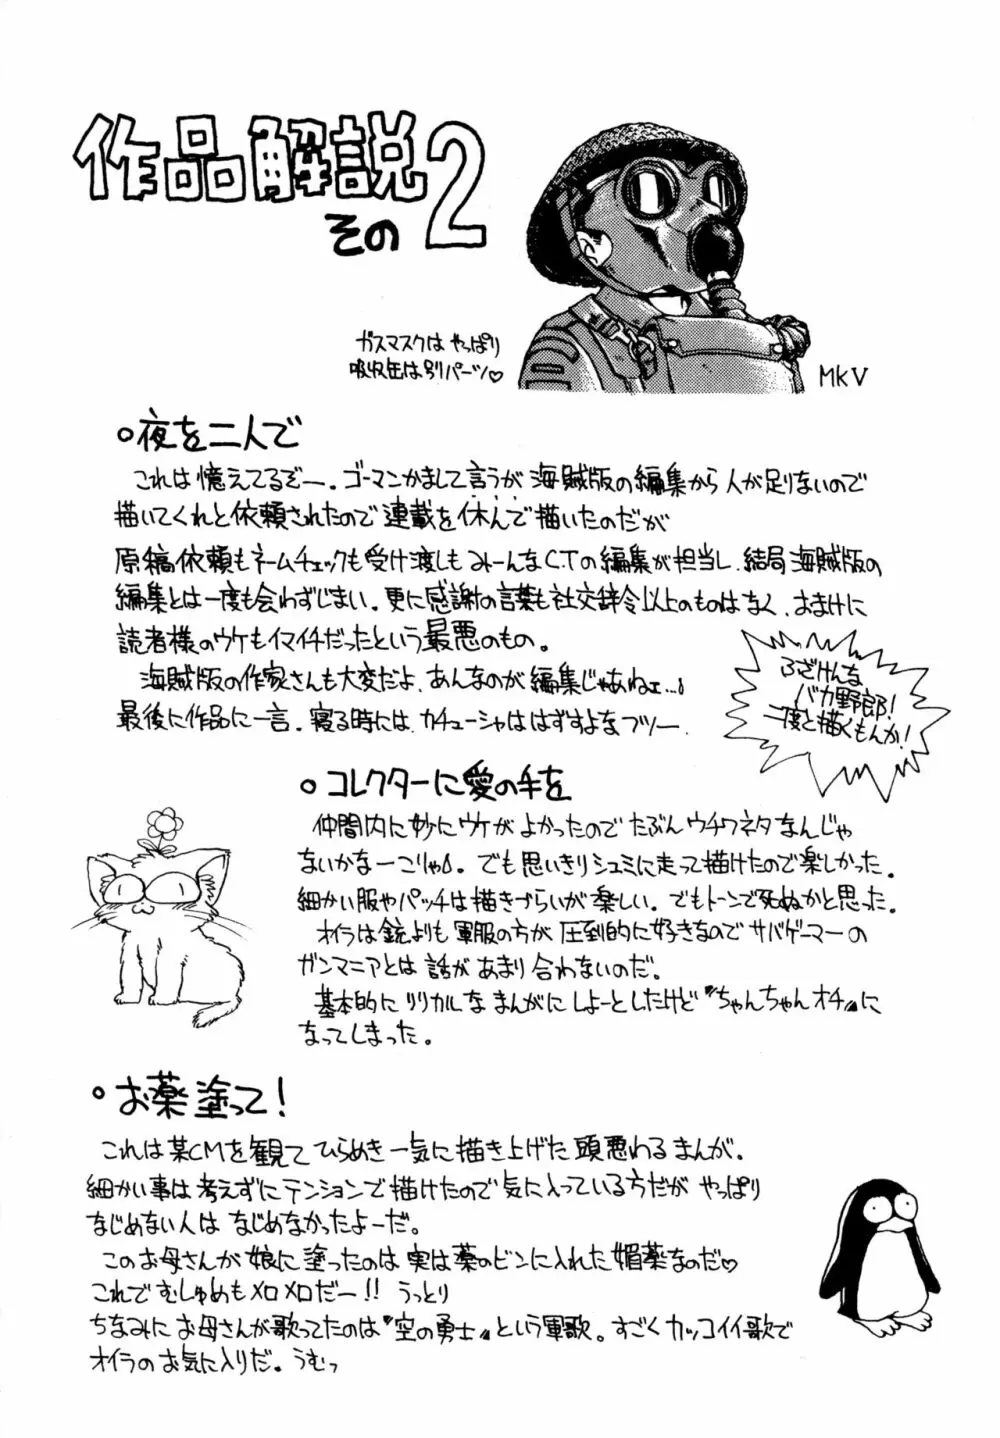 作品解説
その2
ガスマスクは やっぱり
吸収缶は別パーツ♡
MkV
○夜を二人で
これは憶えてるぞー。ゴーマンかまして言うが海賊版の編集から人が足りないので
描いてくれと依頼されたので連載を休んで描いたのだが
原稿依頼もネームチェックも受け渡しもみーんなC.Tの編集が担当し、結局海賊版の
編集とは一度も会わずじまい。更に感謝の言葉も社交辞令以上のものはなく、おまけに
読者様のウケもイマイチだったという最悪のもの。
海賊版の作家さんも大変だよ、あんなのが編集じゃあねェ…♪
最後に作品に一言。寝る時には、カチューシャははずすよなフツー
ふざけんな
バカ野郎!
二度と描くもんか!
○コレクターに愛の手を
仲間内に妙にウケがよかったのでたぶんウチワネタなんじゃ
ないかなーこりゃ♪。でも思いきりシュミに走って描けたので楽しかった。
細かい服やパッチは描きづらいが楽しい。でもトーンで死ぬかと思った。
オイラは銃よりも軍服の方が圧倒的に好きなのでサバゲーマーの
ガンマニアとは話があまり合わないのだ。
基本的にリリカルなまんがにしよーとしたけど〝ちゃんちゃんオチ〟に
なってしまった。
○お薬塗って!
これは某CMを観てひらめき一気に描き上げた頭悪わるまんが。
細かい事は考えずにテンションで描けたので気に入っている方だがやっぱり
なじめない人はなじめなかったよーだ。
このお母さんが娘に塗ったのは実は薬のビンに入れた媚薬なのだ♡
これでむしゅめもメロメロだー!! うっとり
ちなみにお母さんが歌ってたのは〝空の勇士〟という軍歌。すごくカッコイイ歌で
オイラのお気に入りだ。うむっ